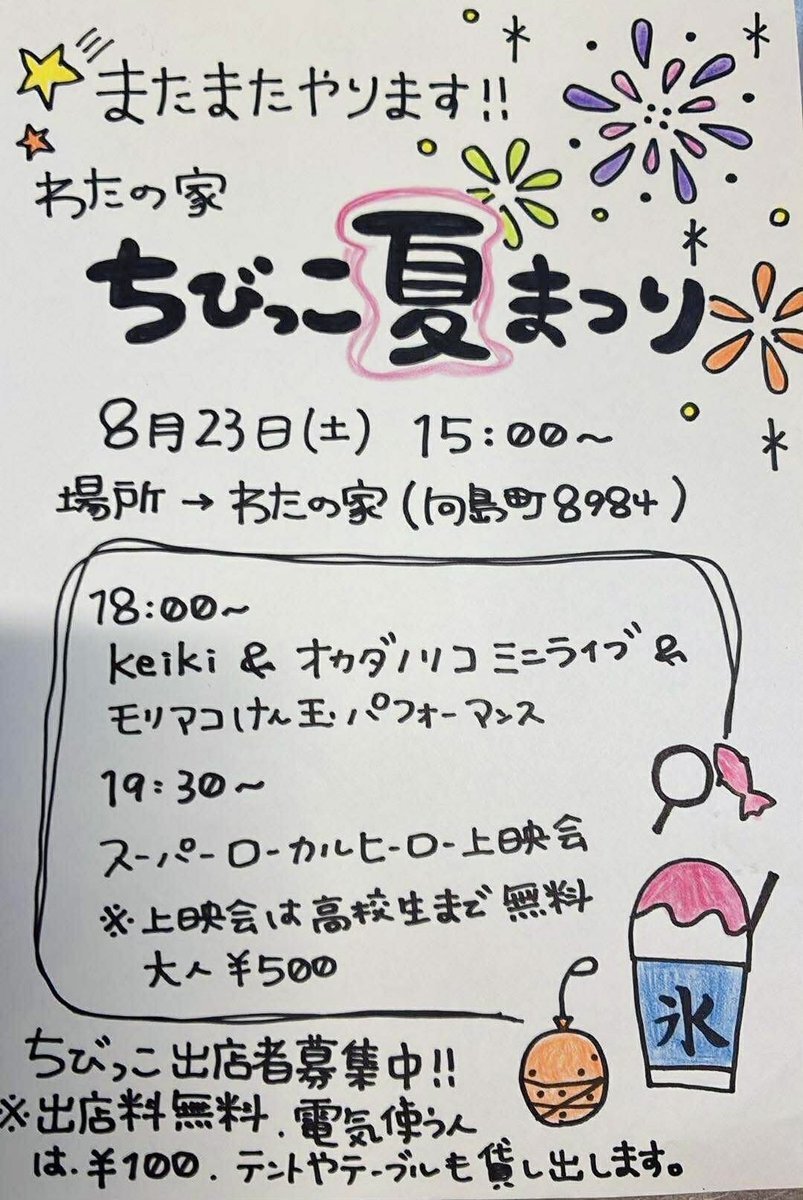 またまたやります!!
わたの家
ちびっこ夏まつり
8月23日(土) 15:00~
場所→わたの家(向島町8984)
18:00~
keiki & オカダノリコ ミニライブ &
モリマコけん玉パフォーマンス
19:30~
スーパーローカルヒーロー上映会
※上映会は高校生まで無料
大人¥500
氷
ちびっこ出店者募集中!!
※出店料無料、電気使う人
は、¥100、テントやテーブルも貸し出します。